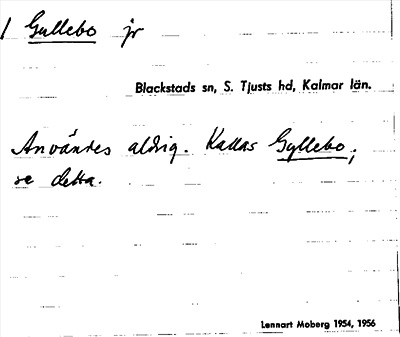 / Gullebo jr
Blackstads sn, S. Tjusts hd, Kalmar län.
Användes aldrig. Kallas Gyllebo,
se detta.
Lennart Moberg 1954, 1956